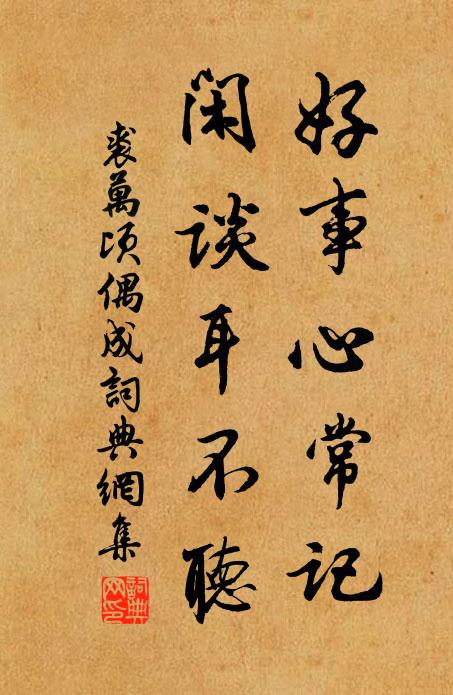 好事心常记
闲谈耳不聽
裘萬頃偶成詞典網集
詞典网印